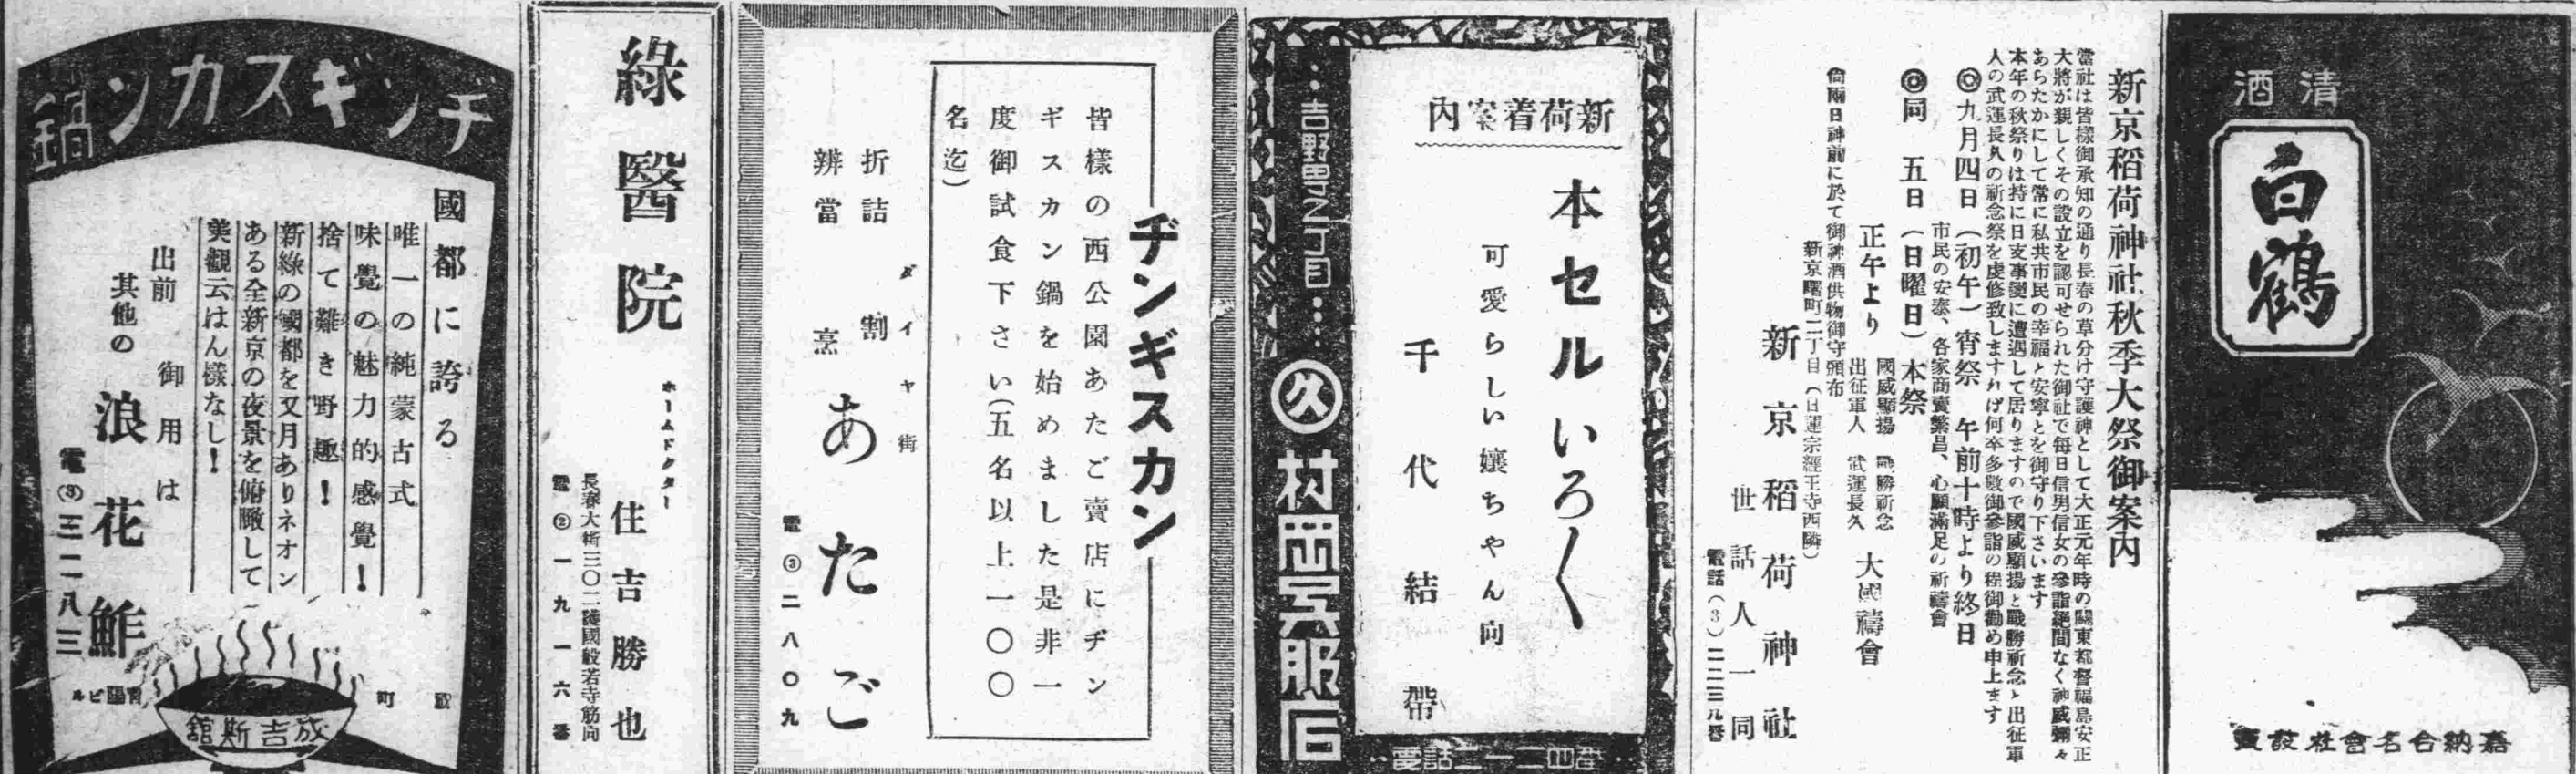 清酒
白鶴
嘉納合名會社醸賣
新京稻荷神社秋季大祭御案内
當社は皆樣御承知の通り長春の草分け守護神として大正元年時の關東都督福島安正
大將が親しくその設立を認可せられた御社で毎日信男信女の參詣絶間なく神威彌々
あらたかにして常に私共市民の幸福と安寧とを御守り下さいます
本年の秋祭りは持に日支事變に遭遇して居りますので國威顯揚と戰勝祈念と出征軍
人の武運長久の祈念祭を虔修致しますれば何卒多數御參詣の程御勸め申上ます
◎九月四日（初午）宵祭　午前十時より終日
市民の安泰、各家商賣繁昌、心願滿足の祈禱會
◎同　五日（日曜日）本祭
正午より
國威顯揚　戰勝祈念
出征軍人　武運長久
大國禱會
尙兩日神前に於て御神酒供物御守頒布
新京曙町二丁目（日蓮宗經王寺西隣）
新京稻荷神社
世話人一同
電話（3）二二三八番
新荷着案内
本セルいろ〱
可愛らしい孃ちゃん向
千代結帶
…吉野町二丁目…
久　村岡呉服店
電話二一二四番
ヂンギスカン
皆樣の西公園あたご賣店にヂン
ギスカン鍋を始めました是非一
度御試食下さい（五名以上一〇〇
名迄）
折詰
辨當
ダイヤ街
割烹
あたご
電③二八〇九
綠醫院
ホームドクター
住吉勝也
長春大街三〇二護國般若寺筋向
電②一九一六番
ヂンギスカン鍋
國都に誇る
唯一の純蒙古式
味覺の魅力的感覺！
捨て難き野趣！
新綠の國都を又月ありネオン
ある全新京の夜景を俯瞰して
美觀云はん樣なし！
出前　御用は
其他の
浪花鮓
電③三二八三
成吉斯館